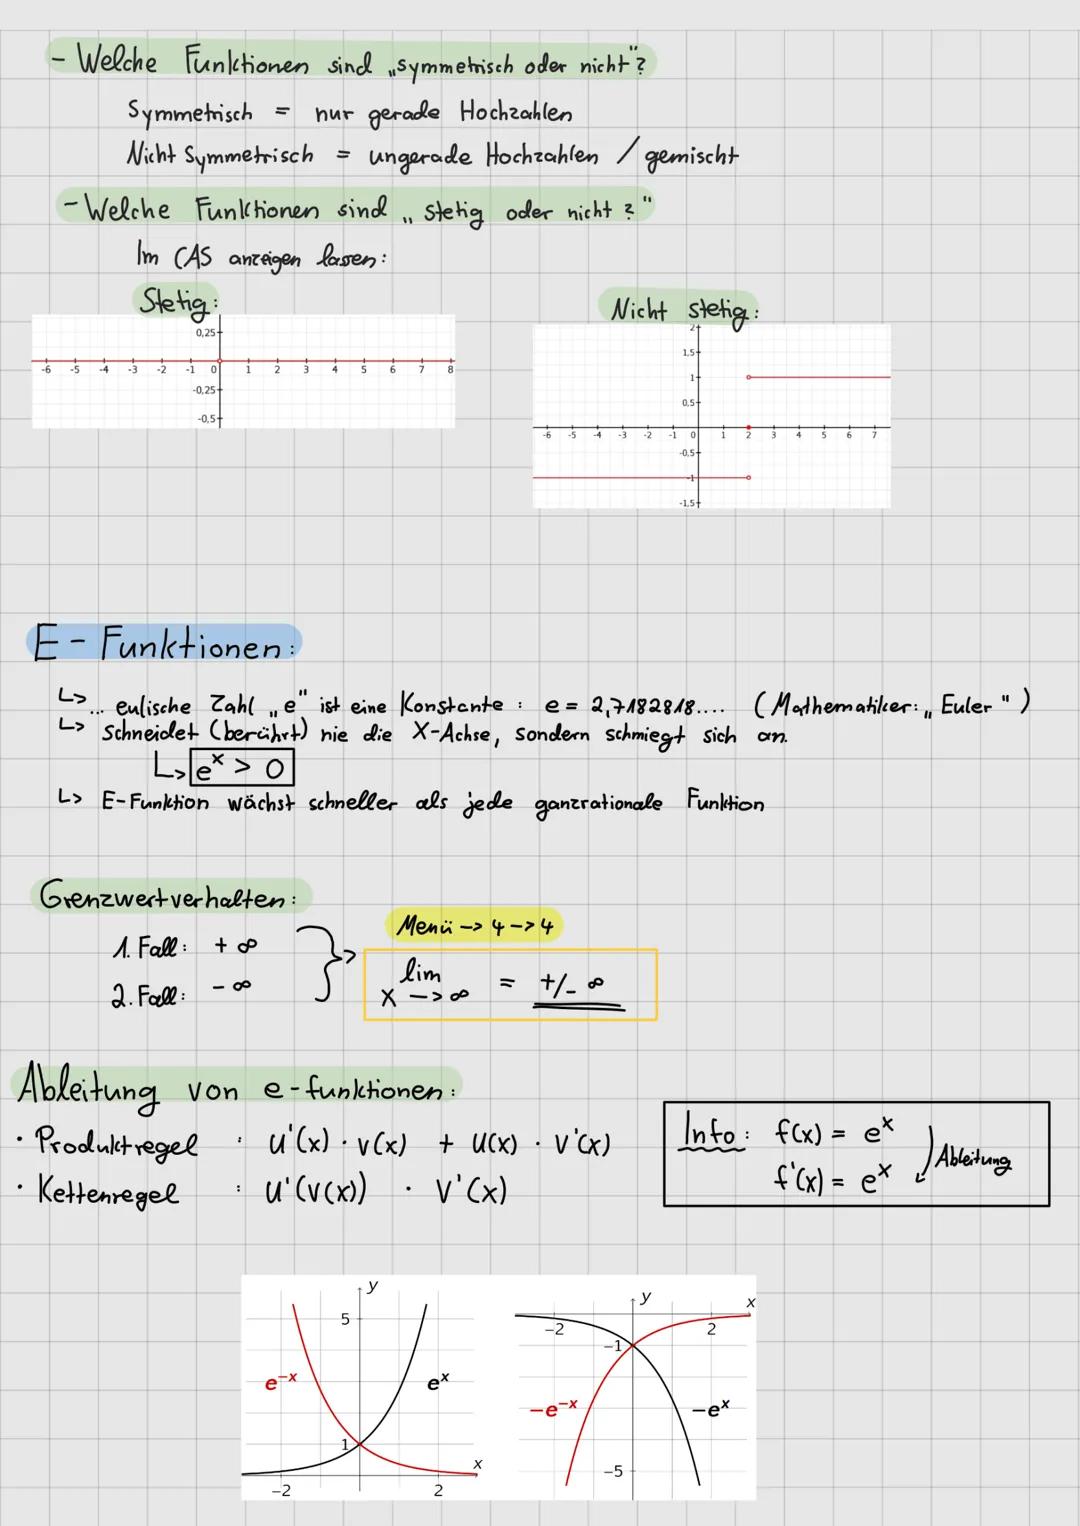 - Welche Funktionen sind „symmetrisch oder nicht"?
Symmetrisch = nur gerade Hochzahlen
Nicht Symmetrisch = ungerade Hochzahlen / gemischt
- Welche Funktionen sind „stetig oder nicht?"
Im CAS anzeigen lassen:
Stetig:
0,25
-6 -5 -4 -3 -2 -1 0 1 2 3 4 5 6 7 8
-0,25
-0,5
Nicht stetig:
2
1,5
1
0,5
-6 -5 -4 -3 -2 -1 0 1 2 3 4 5 6 7
-0,5
-1
-1,5
E - Funktionen:
↳... eulische Zahl „e" ist eine Konstante : e = 2,7182818.... (Mathematiker: „Euler")
↳ Schneidet (berührt) nie die X-Achse, sondern schmiegt sich an.
↳ eˣ > 0
↳ E-Funktion wächst schneller als jede ganzrationale Funktion
Grenzwertverhalten:
1. Fall: + ∞
2. Fall: - ∞
Menü -> 4 -> 4
lim
x -> ∞ = +/- ∞
Ableitung von e-funktionen:
· Produktregel : u'(x) · v(x) + u(x) · v'(x)
· Kettenregel : u'(v(x)) · v'(x)
Info: f(x) = eˣ
f'(x) = eˣ
Ableitung
y
5
e⁻ˣ eˣ
1
x
-2 2
y x
-2 2
-1
-e⁻ˣ -eˣ
-5